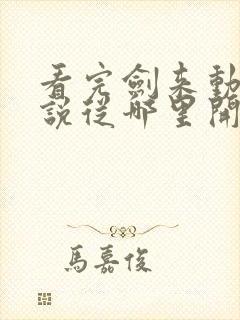 看完劍来動
說從哪里開
馬嘉俊